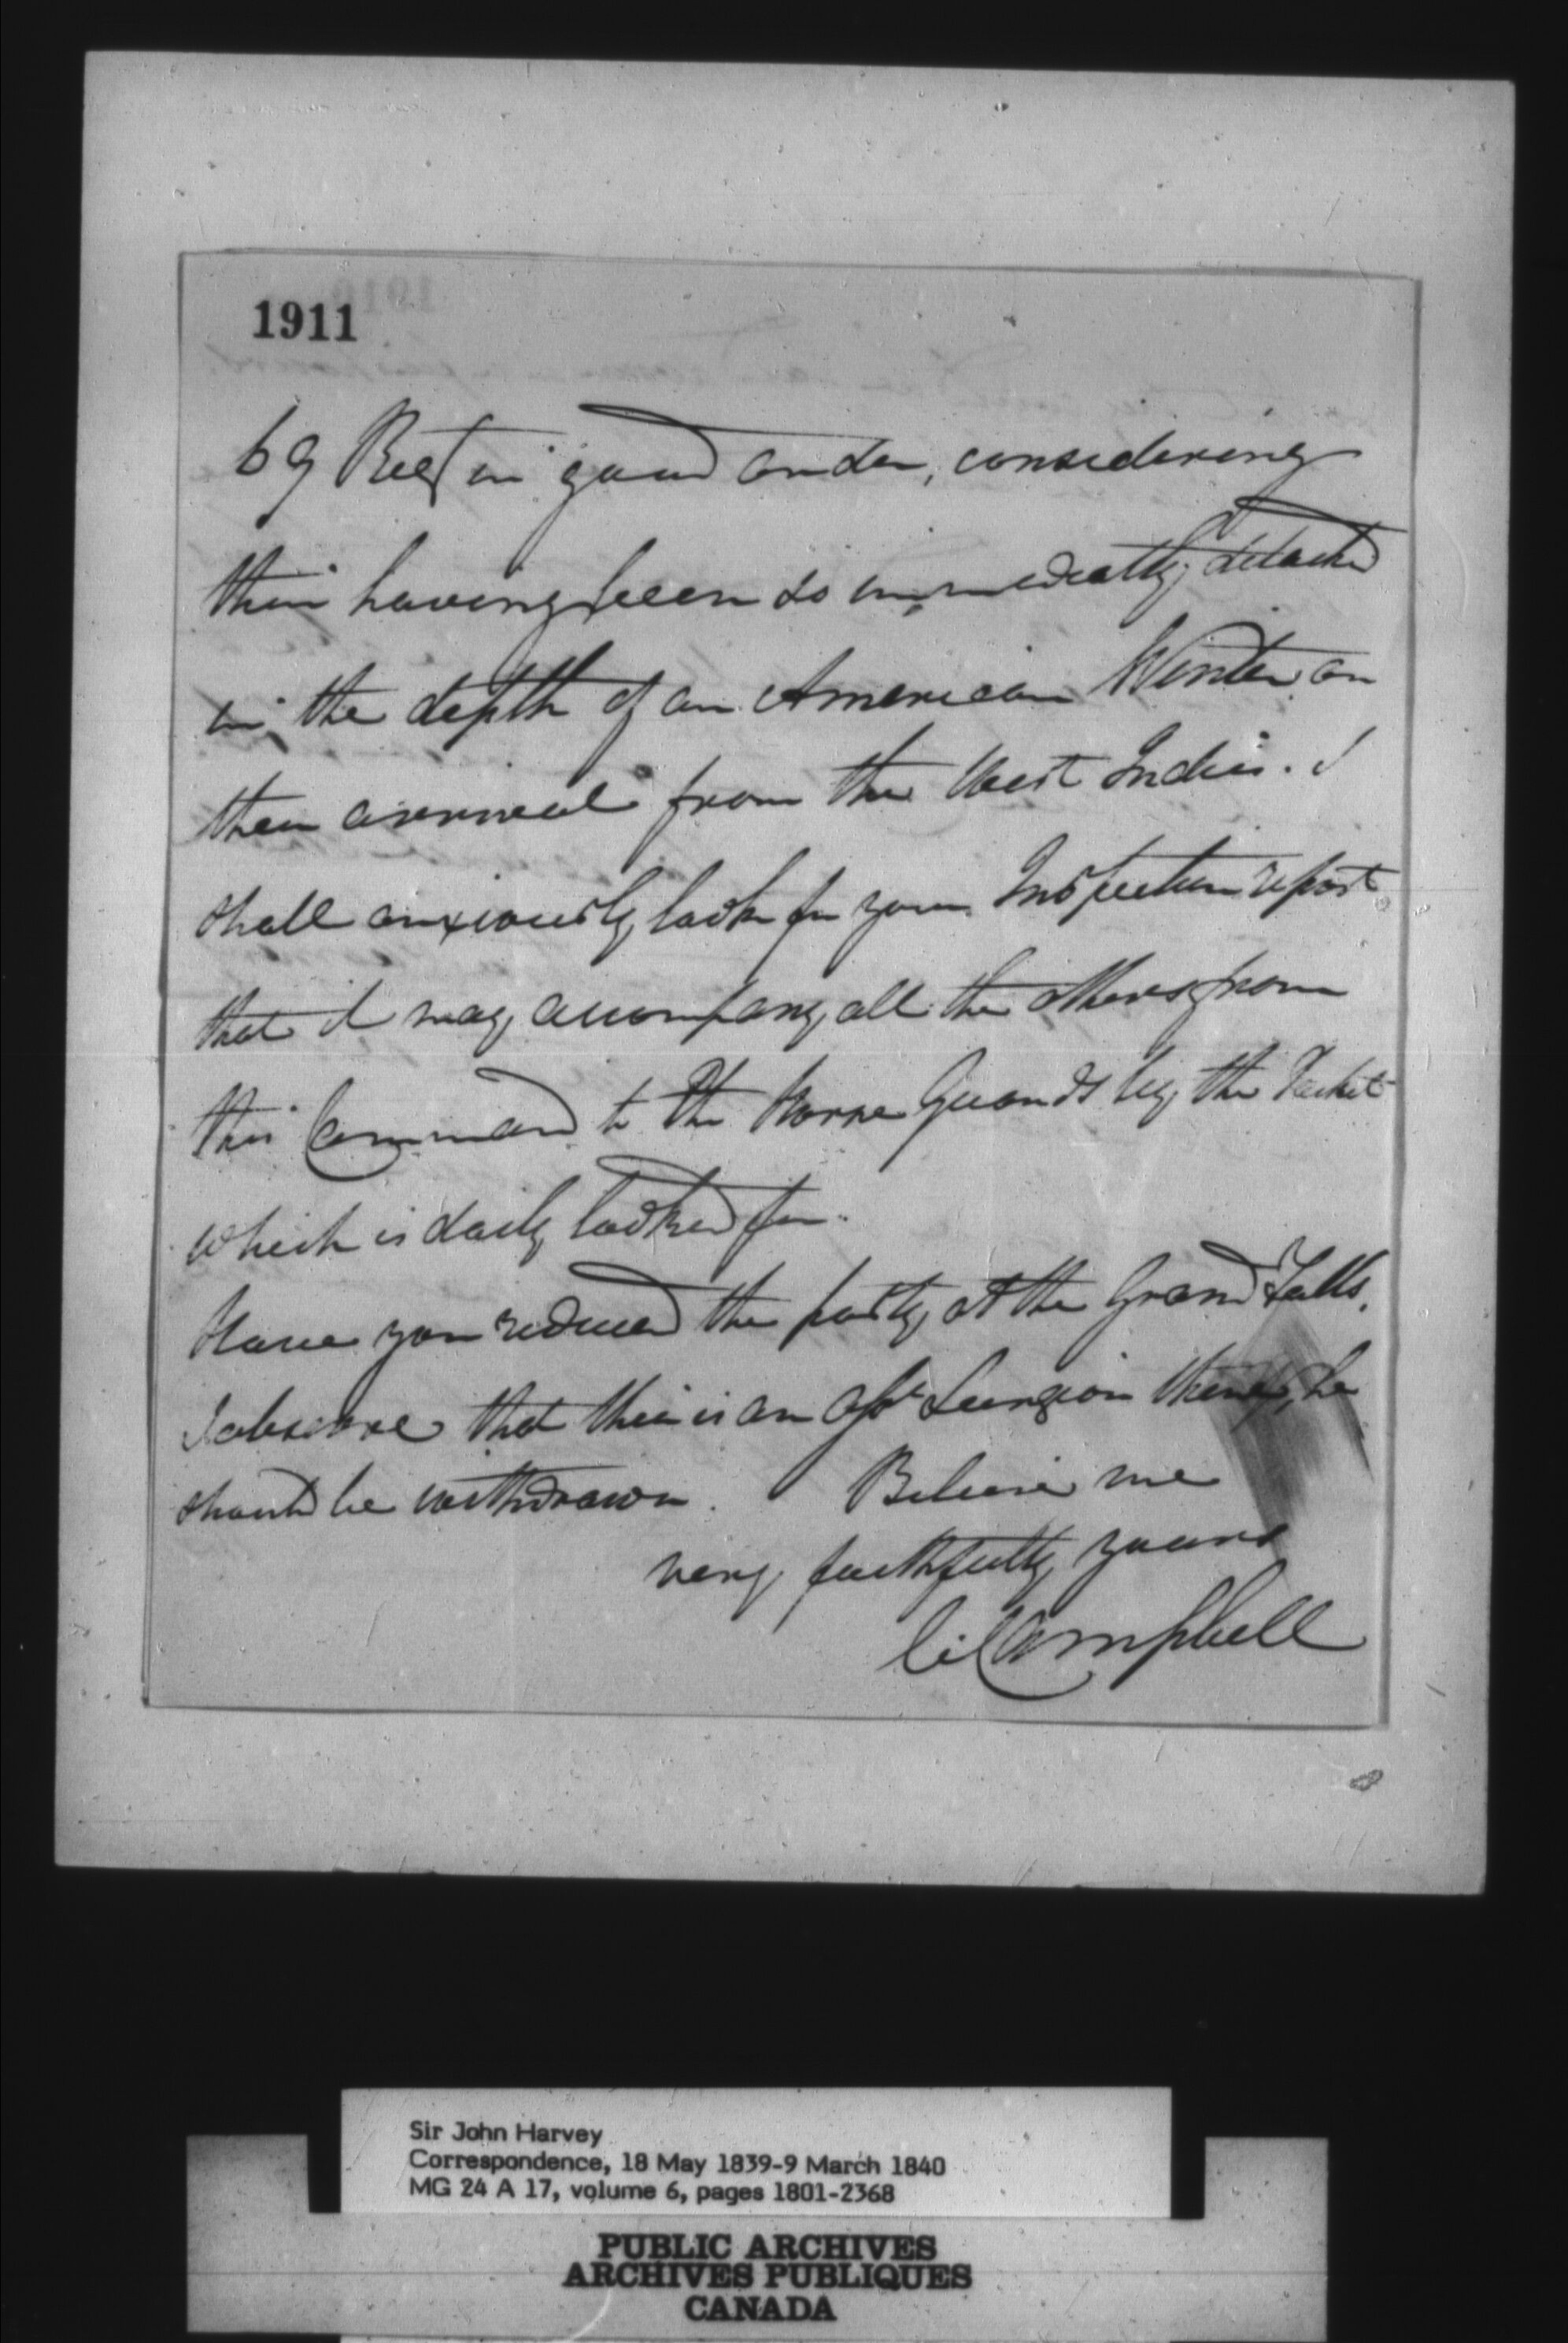 1911
69 Regt in good order, considering
their having been so immediately detached
in the depth of an American Winter on
their arrival from the West Indies. I
shall anxiously look for your Inspection report
that it may accompany all the others from
this Command to the Horse Guards by the Packet
which is daily looked for.
Have you reduced the party at the Grand Falls.
I observe that there is an Asst Surgeon there, he
should be withdrawn. Believe me
very faithfully yours
C Campbell
Sir John Harvey
Correspondence, 18 May 1839-9 March 1840
MG 24 A 17, volume 6, pages 1801-2368
PUBLIC ARCHIVES
ARCHIVES PUBLIQUES
CANADA